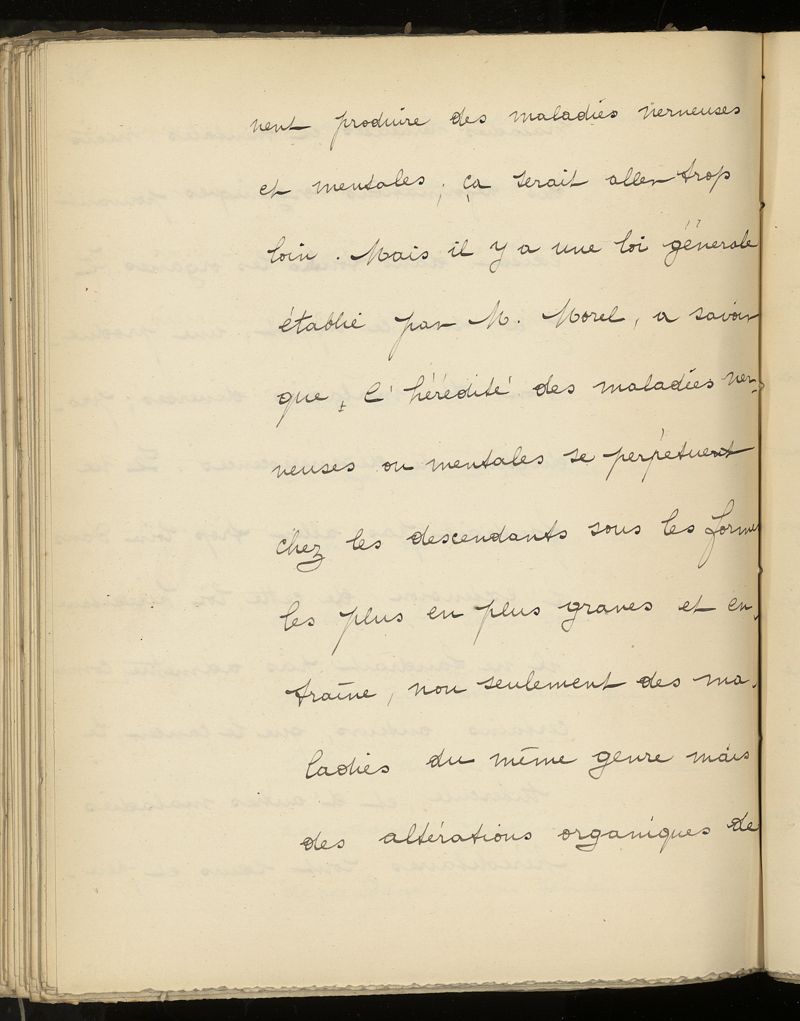 vent produire des maladies nerveuses
et mentales ; ça serait aller trop
loin . Mais il y a une loi générale
établie par M. Morel, a savoir
que, l'hérédité des maladies ner-
veuses ou mentales se perpétuent
chez les descendants sous les formes
les plus en plus graves et en-
traîne, non seulement des ma-
ladies du même genre mais
des altérations organiques de